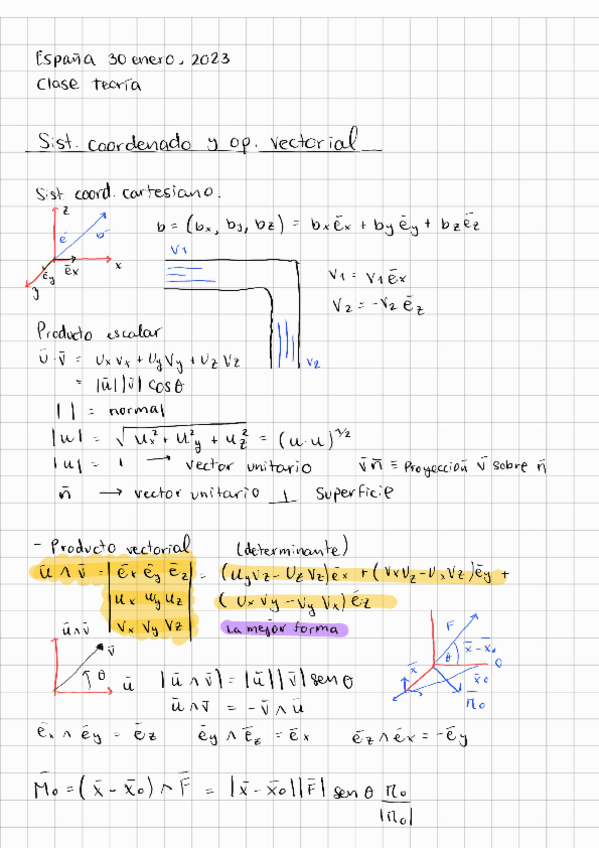 España 30 enero, 2023
Clase teoría
Sist. coordenado y op. vectorial
Sist coord. cartesiano.
z
ē b̄
ēy ēx x
y
b = (bx, by, bz) = bx ēx + by ēy + bz ēz
V1
V1 = V1 ēx
V2 = -V2 ēz
V2
Producto escalar
ū·v̄ = ux vx + uy vy + uz vz
= |ū| |v̄| cos θ
| | = normal
|u| = √(ux² + uy² + uz²) = (u·u)^1/2
|u| = 1 → vector unitario
v̄ n̄ ≡ Proyección v̄ sobre n̄
n̄ → vector unitario ⊥ superficie
- Producto vectorial (determinante)
ū ∧ v̄ = | ēx ēy ēz | = (uy vz - uz vz) ēx + (vx vz - ux vz) ēy +
| ux uy uz | (ux vy - vy vx) ēz
| vx vy vz | La mejor forma
ū∧v̄
v̄
θ
ū
|ū ∧ v̄| = |ū| |v̄| sen θ
ū ∧ v̄ = -v̄ ∧ ū
F
θ x̄ - x̄o
x̄ O
x̄o
M̄o
ēx ∧ ēy = ēz ēy ∧ ēz = ēx ēz ∧ ēx = -ēy
M̄o = (x̄ - x̄o) ∧ F̄ = |x̄ - x̄o| |F̄| sen θ Mo
|Mo|